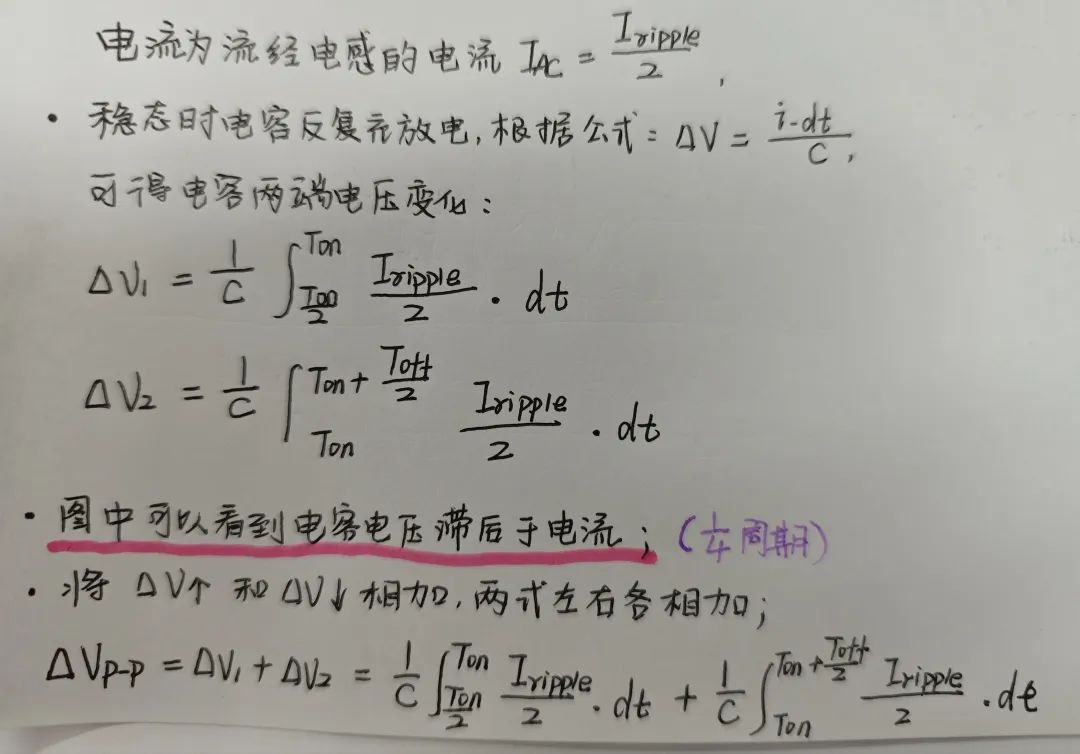 电流为流经电感的电流 I_AC = I_ripple/2,
· 稳态时电容反复充放电,根据公式: ΔV = i·dt/C,
可得电容两端电压变化:
ΔV₁ = 1/C ∫_{Ton/2}^{Ton} I_ripple/2 · dt
ΔV₂ = 1/C ∫_{Ton}^{Ton + Toff/2} I_ripple/2 · dt
· 图中可以看到电容电压滞后于电流; (1/4周期)
· 将 ΔV↑ 和 ΔV↓ 相加,两式左右各相加;
ΔVp-p = ΔV₁ + ΔV₂ = 1/C ∫_{Ton/2}^{Ton} I_ripple/2 · dt + 1/C ∫_{Ton}^{Ton + Toff/2} I_ripple/2 · dt